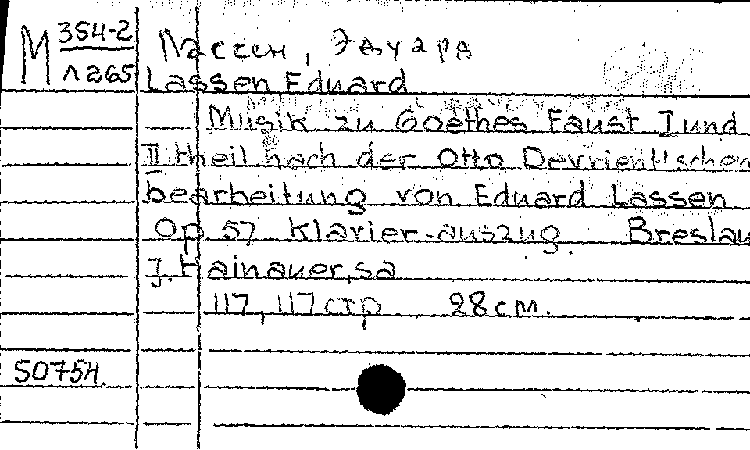 М 354-2 Лассен, Эдуард
Л265 Lassen Eduard
Musik zu Goethes Faust I und
II theil nach der Otto Devrient'schen
bearbeitung von Eduard Lassen
Op. 57 Klavier-auszug. Breslau
J. Hainauer, sa
117, 117 стр. 28 см.
50754.